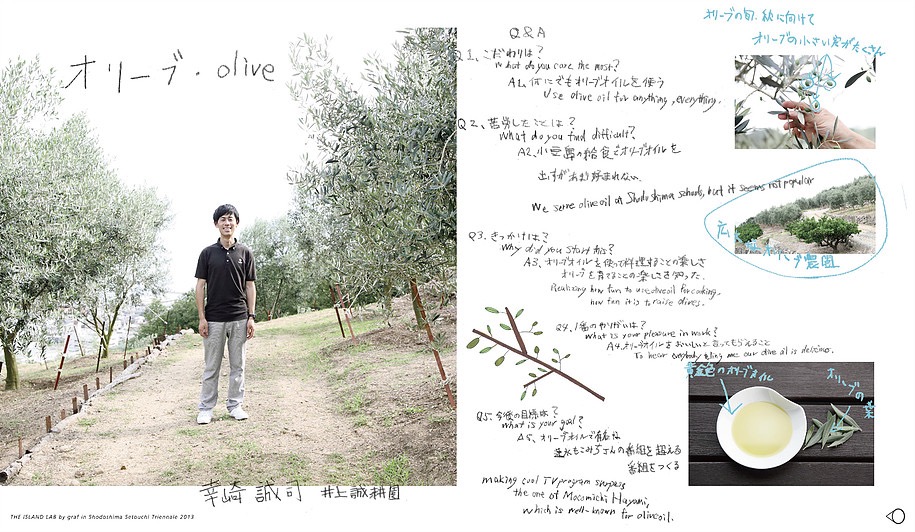 オリーブ・olive
幸崎 誠司 井上誠耕園
THE ISLAND LAB by graf in Shodoshima Setouchi Triennale 2013
Q&A
Q1、こだわりは？
What do you care the most?
A1、何にでもオリーブオイルを使う
Use olive oil for anything, everything.
Q2、苦労したことは？
What do you find difficult?
A2、小豆島の給食でオリーブオイルを
出すがあまり好まれない
We serve olive oil at Shodoshima schools, but it seems not popular
Q3、きっかけは？
Why did you start this?
A3、オリーブオイルを使って料理することの楽しさ
オリーブを育てることの楽しさを知った。
Realizing how fun to use olive oil for cooking,
how fun it is to raise olives.
Q4、1番のやりがいは？
What is your pleasure in work?
A4、オリーブオイルをおいしいと言ってもらえること
To hear everybody telling me our olive oil is delicious.
Q5、今後の目標は？
What is your goal?
A5、オリーブオイルで有名な
速水もこみちさんの番組を超える
番組をつくる
making cool TV program surpass
the one of Mocomichi Hayami,
which is well-known for olive oil.
オリーブの旬、秋に向けて
オリーブの小さい実がたくさん
オリーブ農園
黄金色のオリーブオイル
オリーブの葉